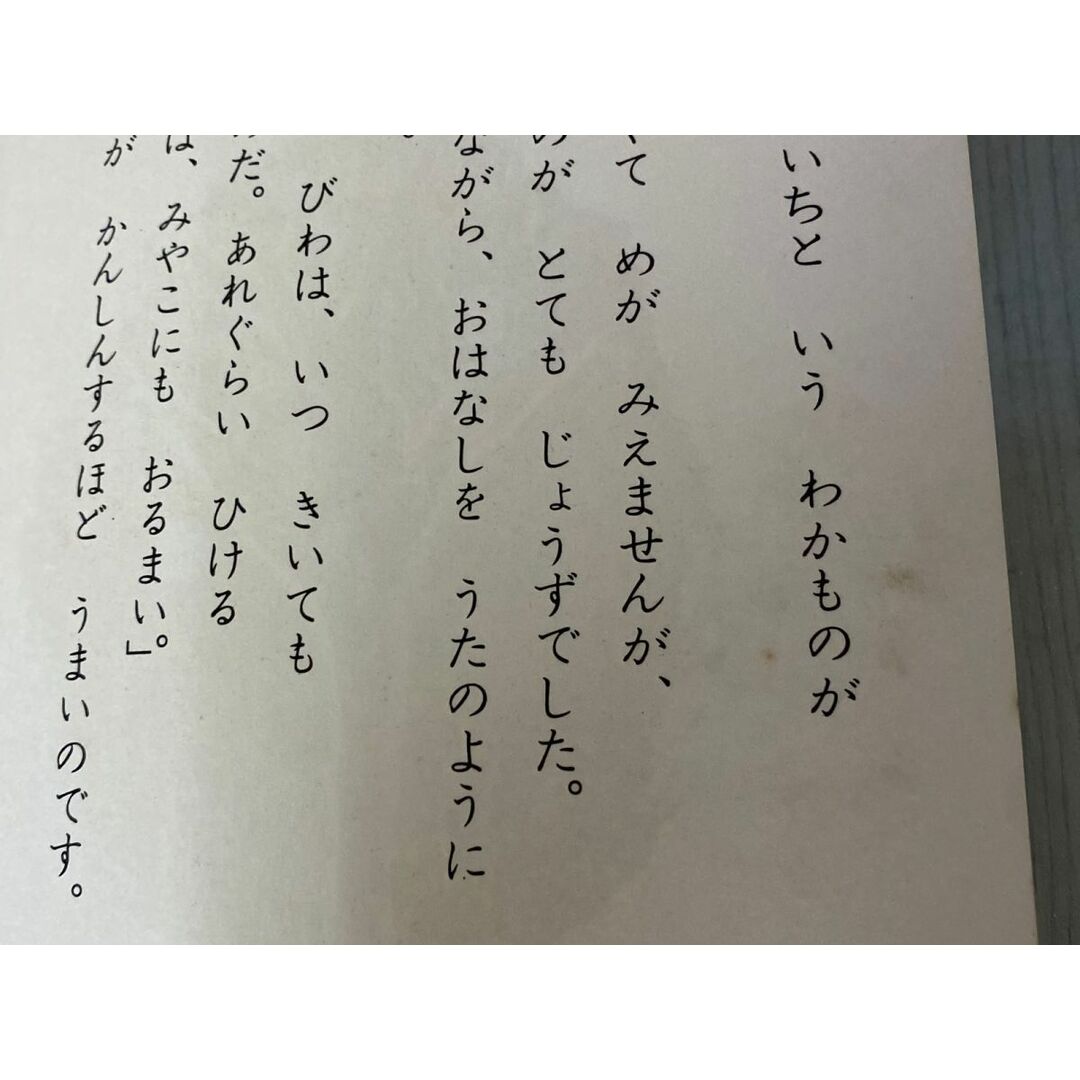 いちと いう わかものが
くて めが みえませんが、
のが とても じょうずでした。
ながら、おはなしを うたのように
。
びわは、いつ きいても
だ。あれぐらい ひける
は、みやこにも おるまい。」
が かんしんするほど うまいのです。